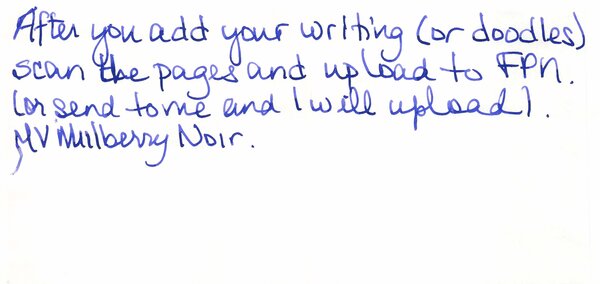 After you add your writing (or doodles)
scan the pages and upload to FPN.
(or send to me and I will upload).
MV Mullberry Noir.